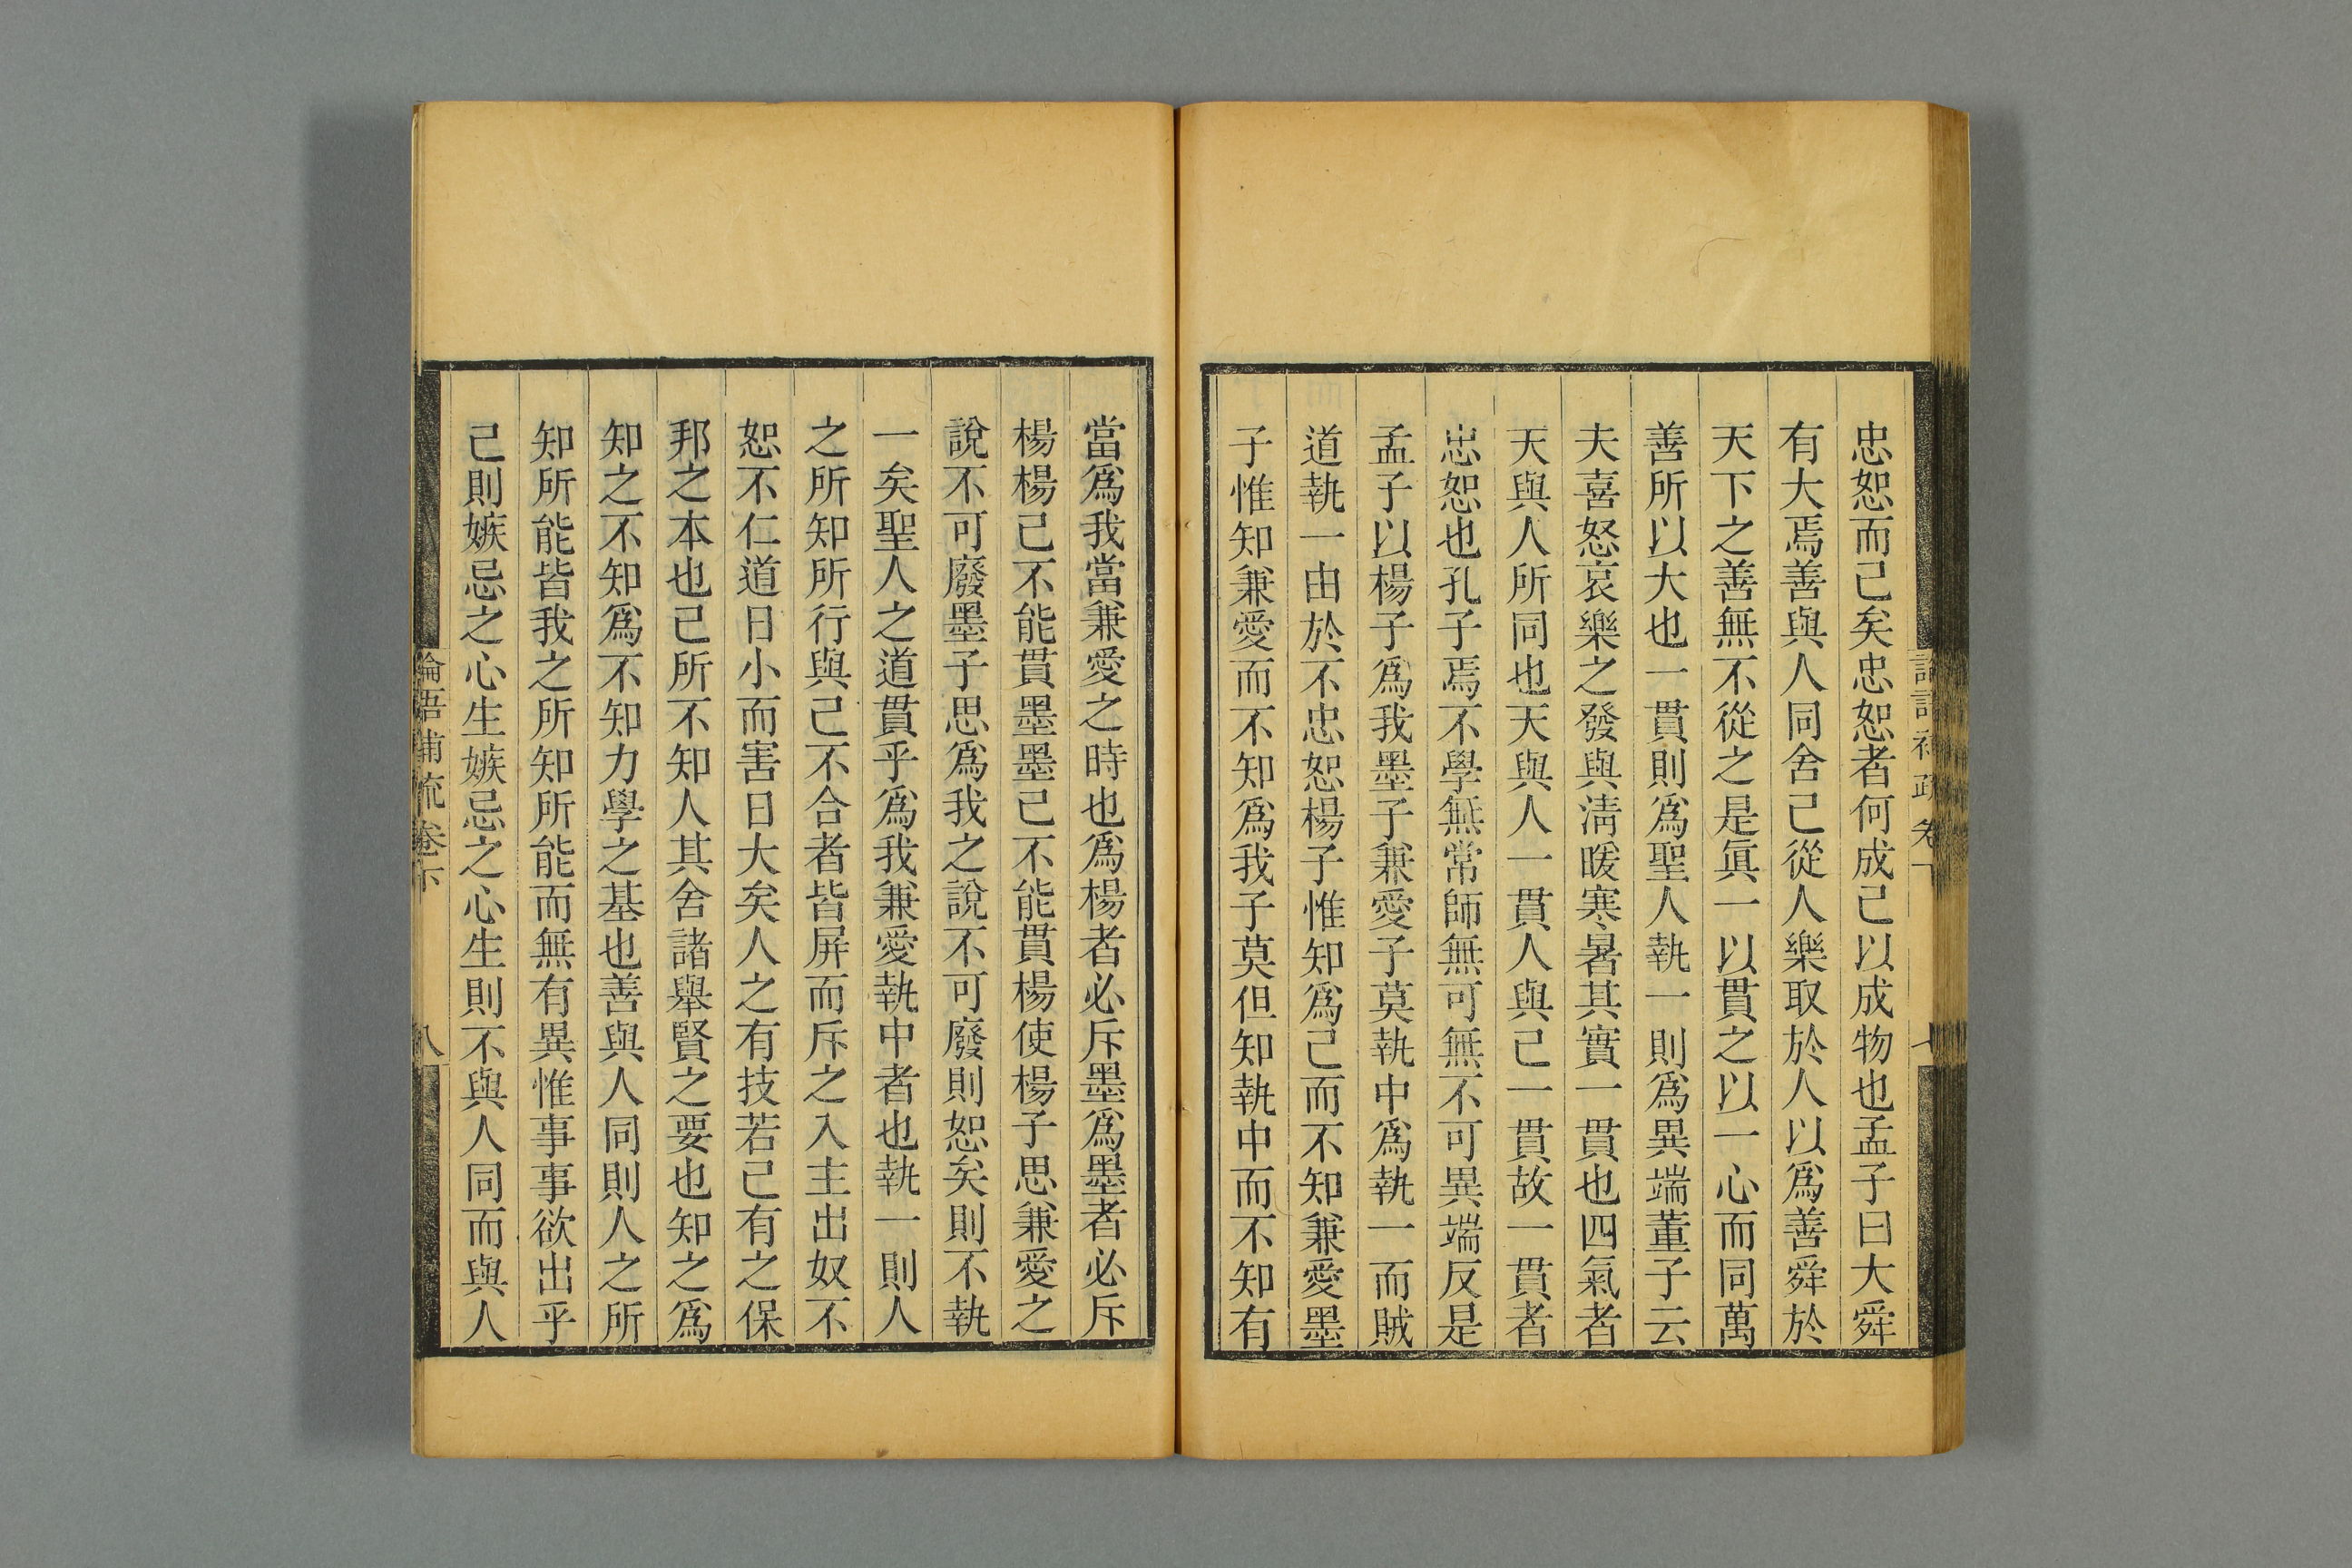 忠恕而己矣忠恕者何成己以成物也孟子曰大舜
有大焉善與人同舍己從人樂取於人以爲善舜於
天下之善無不從之是眞一以貫之以一心而同萬
善所以大也一貫則爲聖人執一則爲異端董子云
夫喜怒哀樂之發與淸暖寒暑其實一貫也四氣者
天與人所同也天與人一貫人與己一貫故一貫者
忠恕也孔子焉不學無常師無可無不可異端反是
孟子以楊子爲我墨子兼愛子莫執中爲執一而賊
道執一由於不忠恕楊子惟知爲己而不知兼愛墨
子惟知兼愛而不知爲我子莫但知執中而不知有
當爲我當兼愛之時也爲楊者必斥墨爲墨者必斥
楊楊己不能貫墨墨己不能貫楊使楊子思兼愛之
說不可廢墨子思爲我之說不可廢則恕矣則不執
一矣聖人之道貫乎爲我兼愛執中者也執一則人
之所知所行與己不合者皆屏而斥之入主出奴不
恕不仁道日小而害日大矣人之有技若己有之保
邦之本也己所不知人其舍諸舉賢之要也知之爲
知之不知爲不知力學之基也善與人同則人之所
知所能皆我之所知所能而無有異惟事事欲出乎
己則嫉忌之心生嫉忌之心生則不與人同而與人
論語補疏卷下
八